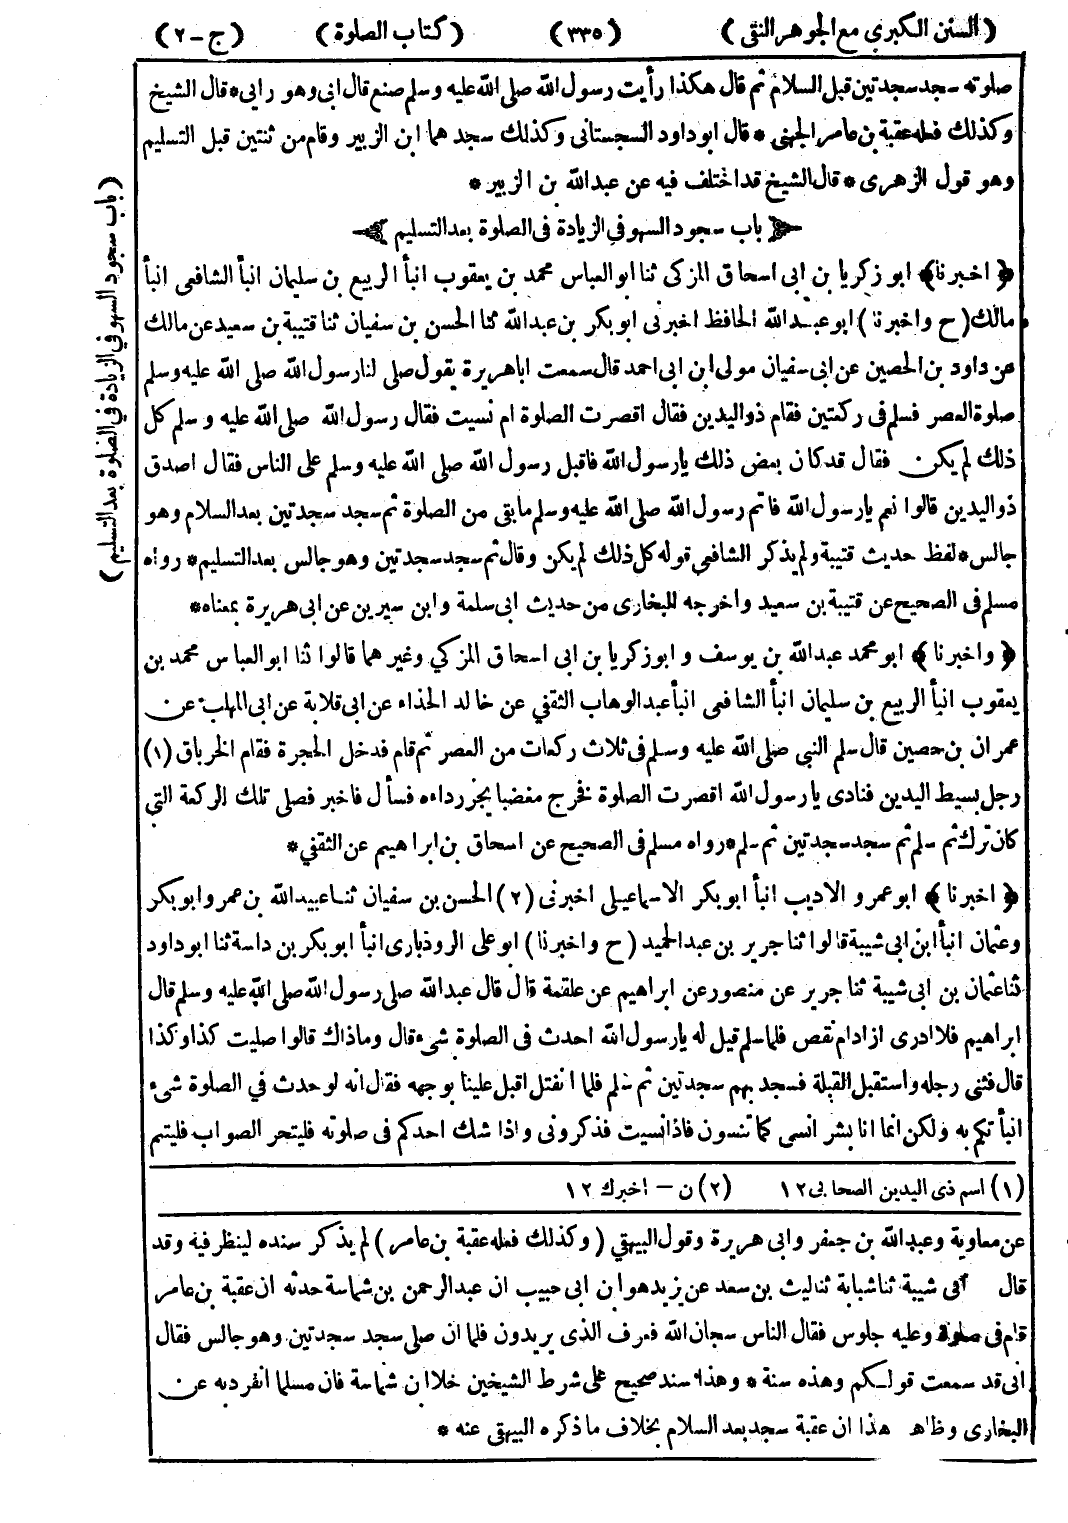 (السنن الكبرى مع الجوهر النقى) (٣٣٥) (كتاب الصلوة) (ج-٢)
صلوته سجد سجدتين قبل السلام ثم قال هكذا رأيت رسول الله صلى الله عليه وسلم صنع قال ابى وهو رابى * قال الشيخ
وكذلك فعله عقبة بن عامر الجهنى * قال ابو داود السجستانى وكذلك سجد هما ابن الزبير وقام من ثنتين قبل التسليم
وهو قول الزهرى * قال الشيخ قد اختلف فيه عن عبد الله بن الزبير *
باب سجود السهو فى الزيادة فى الصلوة بعد التسليم
(باب سجود السهو فى الزيادة فى الصلوة بعد التسليم)
﴿اخبرنا﴾ ابو زكريا بن ابى اسحاق المزكى ثنا ابو العباس محمد بن يعقوب انبأ الربيع بن سليمان انبأ الشافعى انبأ
مالك (ح واخبرنا) ابو عبد الله الحافظ اخبرنى ابو بكر بن عبد الله ثنا الحسن بن سفيان ثنا قتيبة بن سعيد عن مالك
عن داود بن الحصين عن ابى سفيان مولى ابن ابى احمد قال سمعت ابا هريرة يقول صلى لنا رسول الله صلى الله عليه وسلم
صلوة العصر فسلم فى ركعتين فقام ذو اليدين فقال اقصرت الصلوة ام نسيت فقال رسول الله صلى الله عليه وسلم كل
ذلك لم يكن فقال قد كان بعض ذلك يا رسول الله فاقبل رسول الله صلى الله عليه وسلم على الناس فقال اصدق
ذو اليدين قالوا نعم يا رسول الله فاتم رسول الله صلى الله عليه وسلم ما بقى من الصلوة ثم سجد سجدتين بعد السلام وهو
جالس * لفظ حديث قتيبة ولم يذكر الشافعى قوله كل ذلك لم يكن وقال ثم سجد سجدتين وهو جالس بعد التسليم * رواه
مسلم فى الصحيح عن قتيبة بن سعيد واخرجه للبخارى من حديث ابى سلمة وابن سيرين عن ابى هريرة بمعناه *
﴿واخبرنا﴾ ابو محمد عبد الله بن يوسف وابو زكريا بن ابى اسحاق المزكى وغير هما قالوا ثنا ابو العباس محمد بن
يعقوب انبأ الربيع بن سليمان انبأ الشافعى انبأ عبد الوهاب الثقفي عن خالد الحذاء عن ابى قلابة عن ابى المهلب عن
عمران بن حصين قال سلم النبى صلى الله عليه وسلم فى ثلاث ركعات من العصر ثم قام فدخل الحجرة فقام الخرباق (١)
رجل بسيط اليدين فنادى يا رسول الله اقصرت الصلوة فخرج مغضبا يجر رداءه فسأل فاخبر فصلى تلك الركعة التي
كان ترك ثم سلم ثم سجد سجدتين ثم سلم * رواه مسلم فى الصحيح عن اسحاق بن ابراهيم عن الثقفي *
﴿اخبرنا﴾ ابو عمرو الاديب انبأ ابو بكر الاسماعيلى اخبرنى (٢) الحسن بن سفيان ثنا عبيد الله بن عمر وابو بكر
وعثمان انبأ ابن ابى شيبة قالوا ثنا جرير بن عبد الحميد (ح واخبرنا) ابو على الروذبارى انبأ ابو بكر بن داسة ثنا ابو داود
ثنا عثمان بن ابى شيبة ثنا جرير عن منصور عن ابراهيم عن علقمة قال قال عبد الله صلى رسول الله صلى الله عليه وسلم قال
ابراهيم فلا ادرى ازاد ام نقص فلما سلم قيل له يا رسول الله احدث فى الصلوة شىء قال وما ذاك قالوا صليت كذا وكذا
قال فثنى رجله واستقبل القبلة فسجد بهم سجدتين ثم سلم فلما انفتل اقبل علينا بوجهه فقال انه لو حدث في الصلوة شىء
انبأتكم به ولكن انما انا بشر انسى كما تنسون فاذا نسيت فذكرونى واذا شك احدكم فى صلوته فليتحر الصواب فليتم
(١) اسم ذى اليدين الصحابى ١٢ (٢) ن - اخبرك ١٢
عن معاوية وعبد الله بن جعفر وابى هريرة وقول البيهقى (وكذلك فعله عقبة بن عامر) لم يذكر سنده لينظر فيه وقد
قال شيبة ثنا شبابة ثنا ليث بن سعد عن يزيد هو ابن ابى حبيب ان عبد الرحمن بن شماسة حدثه ان عقبة بن عامر
قام فى صلوة وعليه جلوس فقال الناس سبحان الله فعرف الذى يريدون فلما ان صلى سجد سجدتين وهو جالس فقال
انى قد سمعت قولكم وهذه سنة * وهذا سند صحيح على شرط الشيخين خلا ابن شماسة فان مسلما انفرد به عن
البخارى وظاهر هذا ان عقبة سجد بعد السلام بخلاف ما ذكره البيهقى عنه *